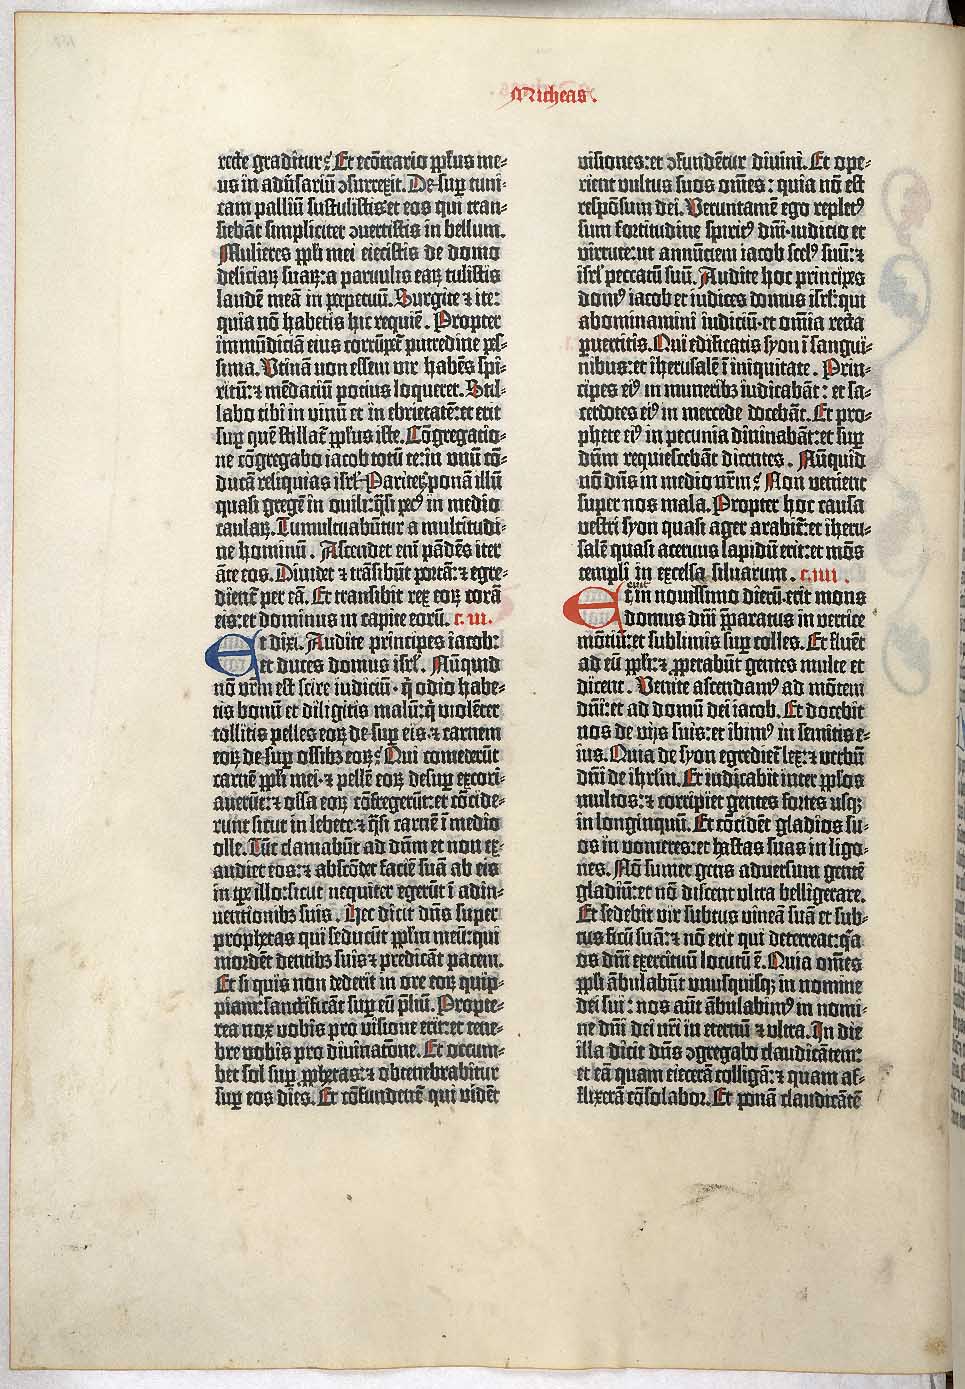 Micheas.
recte graditur? Et ecõtrario ppľus me-
us in adũsariũ ɔsurrexit. De-sup̱ tuni-
cam palliũ sustulistis:et eos qui tran-
siebãt simpliciter ɔuertistis in bellum.
Mulieres ppľi mei eiecistis de domo
deliciaꝝ suaꝝ:a paruulis eaꝝ tulistis
laudẽ meã in p̱petuũ. Surgite ⁊ ite:
quia nõ habetis hic requiẽ. Propter
immũdiciã eius corrũpeť putredine pes-
sima. Vtinã non essem vir habẽs spi-
ritũ:⁊ mẽdaciũ potius loquerer. Stil-
labo tibi in vinũ et in ebrietatẽ:et erit
sup̱ quẽ stillať ppľus iste. Cõgregatio-
ne cõgregabo iacob totũ te:in vnũ cõ-
ducã reliquias isrľ. Pariteꝝ ponã illũ
quasi gregẽ in ouili:q̃si pec⁹ in medio
caulaꝝ. Tumultuabũtur a multitudi-
ne hominũ. Ascendet eni pãdẽs iter
ãte eos. Diuidẽt ⁊ trãsibũt portã:⁊ egre-
dienť per eã. Et transibit rex eoꝝ corã
eis:et dominus in capite eorũ. c. iii.
Et dixi. Audite principes iacob:
et duces domus isrľ. Nũquid
nõ vrm̃ est scire iudiciũ· q̇ odio habe-
tis bonũ et diligitis malũ:q̇ violẽter
tollitis pelles eoꝝ de-sup̱ eis·⁊ carnem
eoꝝ de-sup̱ ossibꝫ eoꝝ? Qui comederũt
carnẽ ppľi mei·⁊ pellẽ eoꝝ desup̱ excori-
auerũt:⁊ ossa eoꝝ cõfregerũt:et cõcide-
runt sicut in lebete·⁊ q̃si carnẽ ĩ medio
olle. Tũc clamabũt ad dñm et non ex-
audiet eos:⁊ abscõdet faciẽ suã ab eis
in tp̱e illo:sicut nequiter egerũt ĩ adin-
uentionibꝫ suis. Hec dicit dñs super
prophetas qui seducũt ppľm meũ:qui
mordẽt dentibꝫ suis ⁊ predicãt pacem.
Et si quis non dederit in ore eoꝝ quip-
piam:sanctificãt sup̱ eũ p̃liũ. Propte-
rea nox vobis pro visione erit:et tene-
bre vobis pro diuinatõne. Et occum-
bet sol sup̱ pphetas:⁊ obtenebrabitur
sup̱ eos dies. Et cõfundenť qui vidẽt
visiones:et ɔfundẽtur diuini. Et ope-
rient vultus suos om̃es: quia nõ est
respõsum dei. Veruntamẽ ego replet⁹
sum fortitudine spirit⁹ dñi·iudicio et
virtute:ut annũciem iacob scel⁹ suũ:⁊
isrľ peccatũ suũ. Audite hoc principes
dom⁹ iacob et iudices domus isrľ:qui
abominamini iudiciũ·et om̃ia recta
p̱uertitis. Qui edificatis syon ĩ sangui-
nibus:et iherusalẽ ĩ iniquitate. Prin-
cipes ei⁹ in muneribꝫ iudicabãt: et sa-
cerdotes ei⁹ in mercede docebãt. Et pro-
phete ei⁹ in pecunia diuinabãt:et sup̱
dñm requiescebãt dicentes. Nũquid
nõ dñs in medio nrm̃? Non venient
super nos mala. Propter hoc causa
vestri syon quasi ager arabiť:et iheru-
salẽ quasi aceruus lapidũ erit:et mõs
templi in excelsa siluarum. c. iiii.
Et in nouissimo dierũ·erit mons
domus dñi p̃paratus in vertice
mõtiũ:et sublimis sup̱ colles. Et fluẽt
ad eũ ppľi:⁊ pperabũt gentes multe et
dicent. Venite ascendam⁹ ad mõtem
dñi:et ad domũ dei iacob. Et docebit
nos de vijs suis:et ibim⁹ in semitis e-
ius. Quia de syon egredieť lex:⁊ verbũ
dñi de ihrľm. Et iudicabit inter ppľos
multos:⁊ corripiet gentes fortes usqꝫ
in longinquũ. Et cõcidẽt gladios su-
os in vomeres:et hastas suas in ligo-
nes. Nõ sumet gens aduersum gentẽ
gladiũ:et nõ discent ultra belligerare.
Et sedebit vir subtus vineã suã et sub-
tus ficũ suã:⁊ nõ erit qui deterreat:q̃a
os dñi exercituũ locutũ ẽ. Quia om̃es
ppľi ãbulabũt vnusquisqꝫ in nomine
dei sui: nos aũt ãbulabim⁹ in nomi-
ne dñi dei nri̇ in eternũ ⁊ ultra. In die
illa dicit dñs ɔgregabo claudicãtem:
et eã quam eiecerã colligã:⁊ quam af-
flixerã cõsolabor. Et ponã claudicãtẽ